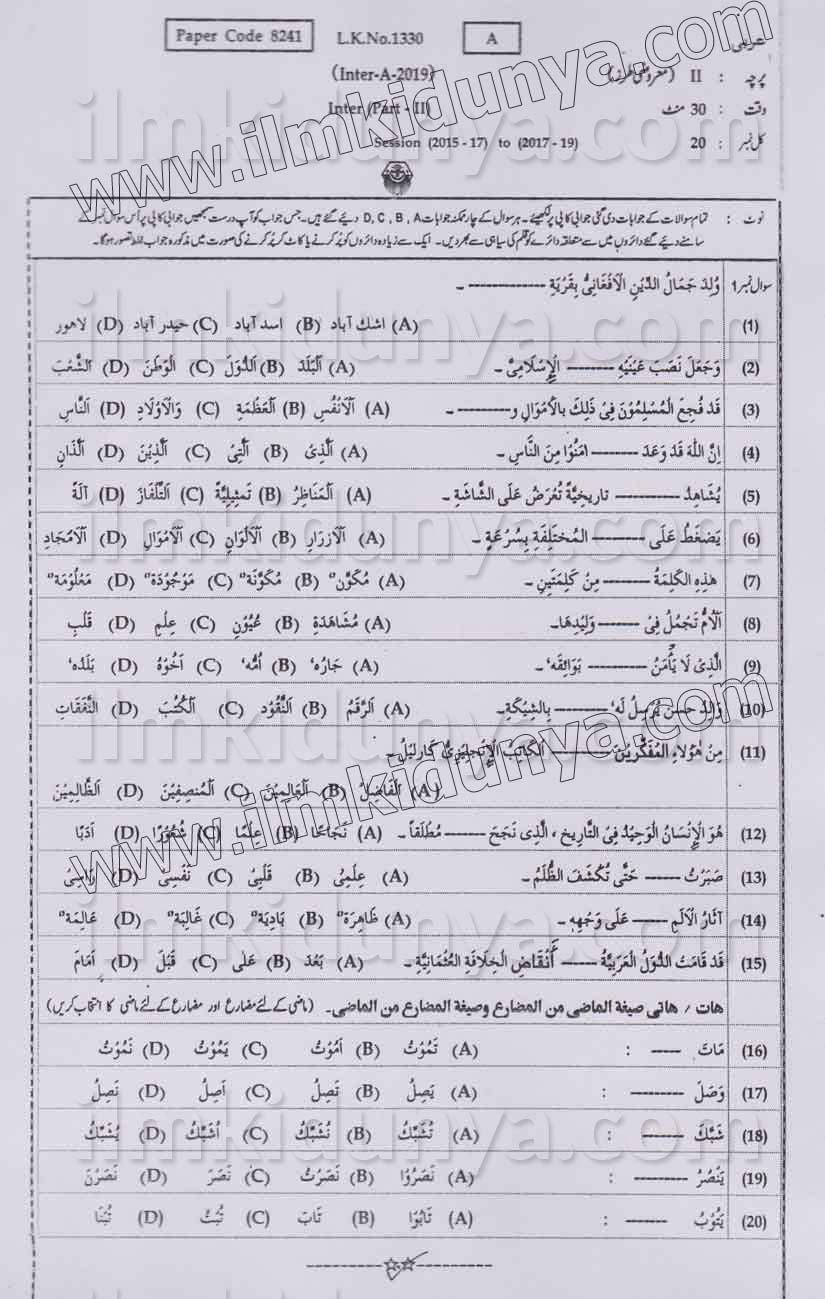 Paper Code 8241 L.K.No.1330 A عربی
(Inter-A-2019) پرچہ : II (معروضی طرز)
Inter (Part - II) وقت : 30 منٹ
Session (2015 - 17) to (2017 - 19) کل نمبر : 20
نوٹ : تمام سوالات کے جوابات دی گئی جوابی کاپی پر لکھیئے۔ ہر سوال کے چار ممکنہ جوابات D, C, B, A دیئے گئے ہیں۔ جس جواب کو آپ درست سمجھیں جوابی کاپی پر اُس سوال نمبر کے
سامنے دیئے گئے دائروں میں سے متعلقہ دائرے کو قلم کی سیاہی سے بھر دیں۔ ایک سے زیادہ دائروں کو پُر کرنے یا کاٹ کر پُر کرنے کی صورت میں مذکورہ جواب غلط تصور ہوگا۔
سوال نمبر 1 وُلِدَ جَمَالُ الدِّيْنِ الْاَفْغَانِىُّ بِقَرْيَةِ ------------ ۔
(1) (A) اشک آباد (B) اسد آباد (C) حیدر آباد (D) لاهور
(2) وَجَعَلَ نَصَبَ عَيْنَيْهِ -------- الْإِسْلَامِىَّ ۔ (A) اَلْبَلَدَ (B) اَلدُّوَلَ (C) اَلْوَطَنَ (D) اَلشَّعْبَ
(3) قَدْ فُجِعَ الْمُسْلِمُوْنَ فِىْ ذٰلِكَ بِالْاَمْوَالِ وَ--------- ۔ (A) اَلْاَنْفُسِ (B) اَلْعَظْمَةِ (C) وَالْاَوْلَادِ (D) اَلنَّاسِ
(4) اِنَّ اللّٰهَ قَدْ وَعَدَ -------- اٰمَنُوْا مِنَ النَّاسِ ۔ (A) اَلَّذِىْ (B) اَلَّتِىْ (C) اَلَّذِيْنَ (D) اَلَّذَانِ
(5) يُشَاهِدُ ----------- تاريخيَّةً تُعْرَضُ عَلَى الشَّاشَةِ ۔ (A) اَلْمَنَاظِرُ (B) تَمْثِيْلِيَّةً (C) اَلتِّلْفَازَ (D) آلَةً
(6) يَضْغَطُ عَلٰى --------- الْمُخْتَلِفَةِ بِسُرْعَةٍ ۔ (A) اَلْاَزْرَارِ (B) اَلْاَلْوَانِ (C) اَلْاَمْوَالِ (D) اَلْاَمْجَادِ
(7) هٰذِهِ الْكَلِمَةُ -------- مِنْ كَلِمَتَيْنِ ۔ (A) مُكَوَّنٌ (B) مُكَوَّنَةٌ (C) مَوْجُوْدَةٌ (D) مَعْلُوْمَةٌ
(8) اَلْاُمُّ تَجْمُلُ فِىْ ------- وَلِيْدِهَا۔ (A) مُشَاهَدَةِ (B) عُيُوْنِ (C) عِلْمِ (D) قَلْبِ
(9) اَلَّذِىْ لَا يَأْمَنُ ---------- بَوَائِقَهٗ ۔ (A) جَارُهٗ (B) اُمُّهٗ (C) اَخُوْهٗ (D) بَلَدُهٗ
(10) وَالِدُ حسن يُرْسِلُ لَهٗ --------- بِالشِّيْكَةِ۔ (A) اَلرَّقَمُ (B) اَلنُّقُوْدِ (C) اَلْكُتُبَ (D) اَلنَّفَقَاتِ
(11) مِنْ هٰؤُلَاءِ الْمُفَكِّرِيْنَ ---------- اَلْكَاتِبُ الْإِنْجِلِيْزِىُّ كَارْلَيْلُ ۔
(A) اَلْفَاضِلُ (B) اَلْعَالِمِيْنَ (C) اَلْمُنْصِفِيْنَ (D) اَلظَّالِمِيْنَ
(12) هُوَ الْإِنْسَانُ الْوَحِيْدُ فِى التَّارِيخِ ، الَّذِى نَجَحَ ------- مُطْلَقاً ۔ (A) نَجَاحًا (B) عِلْمًا (C) شُعُوْرًا (D) اَدَبًا
(13) صَبَرْتُ ------ حَتّٰى تُكْشَفَ الظُّلَمُ ۔ (A) عِلْمِىْ (B) قَلْبِىْ (C) نَفْسِىْ (D) رَاسِىْ
(14) آثَارُ الْاَلَمِ ------ عَلٰى وَجْهِهٖ ۔ (A) ظَاهِرَةٌ (B) بَادِيَةٌ (C) غَالِبَةٌ (D) عَالِمَةٌ
(15) قَدْ قَامَتْ الدُّوَلُ الْعَرَبِيَّةُ ------ أَنْقَاضِ الْخِلَافَةِ الْعُثْمَانِيَّةِ ۔ (A) بَعْدَ (B) عَلٰى (C) قَبْلَ (D) اَمَامَ
هات / هاتى صيغة الماضى من المضارع وصيغة المضارع من الماضى۔ (ماضی کے لئے مضارع اور مضارع کے لئے ماضی کا انتخاب کریں)
(16) مَاتَ ----- : (A) تَمُوْتُ (B) اَمُوْتُ (C) يَمُوْتُ (D) نَمُوْتُ
(17) وَصَلَ --------- : (A) يَصِلُ (B) تَصِلُ (C) اَصِلُ (D) نَصِلُ
(18) شَبَّكَ ------- : (A) تُشَبِّكُ (B) نُشَبِّكُ (C) اُشَبِّكُ (D) يُشَبِّكُ
(19) يَنْصُرُ --------- : (A) نَصَرُوْا (B) نَصَرْتُ (C) نَصَرَ (D) نَصَرْنَ
(20) يَتُوْبُ ------- : (A) تَابُوْا (B) تَابَ (C) تُبْتُ (D) تُبْنَا
www.ilmkidunya.com